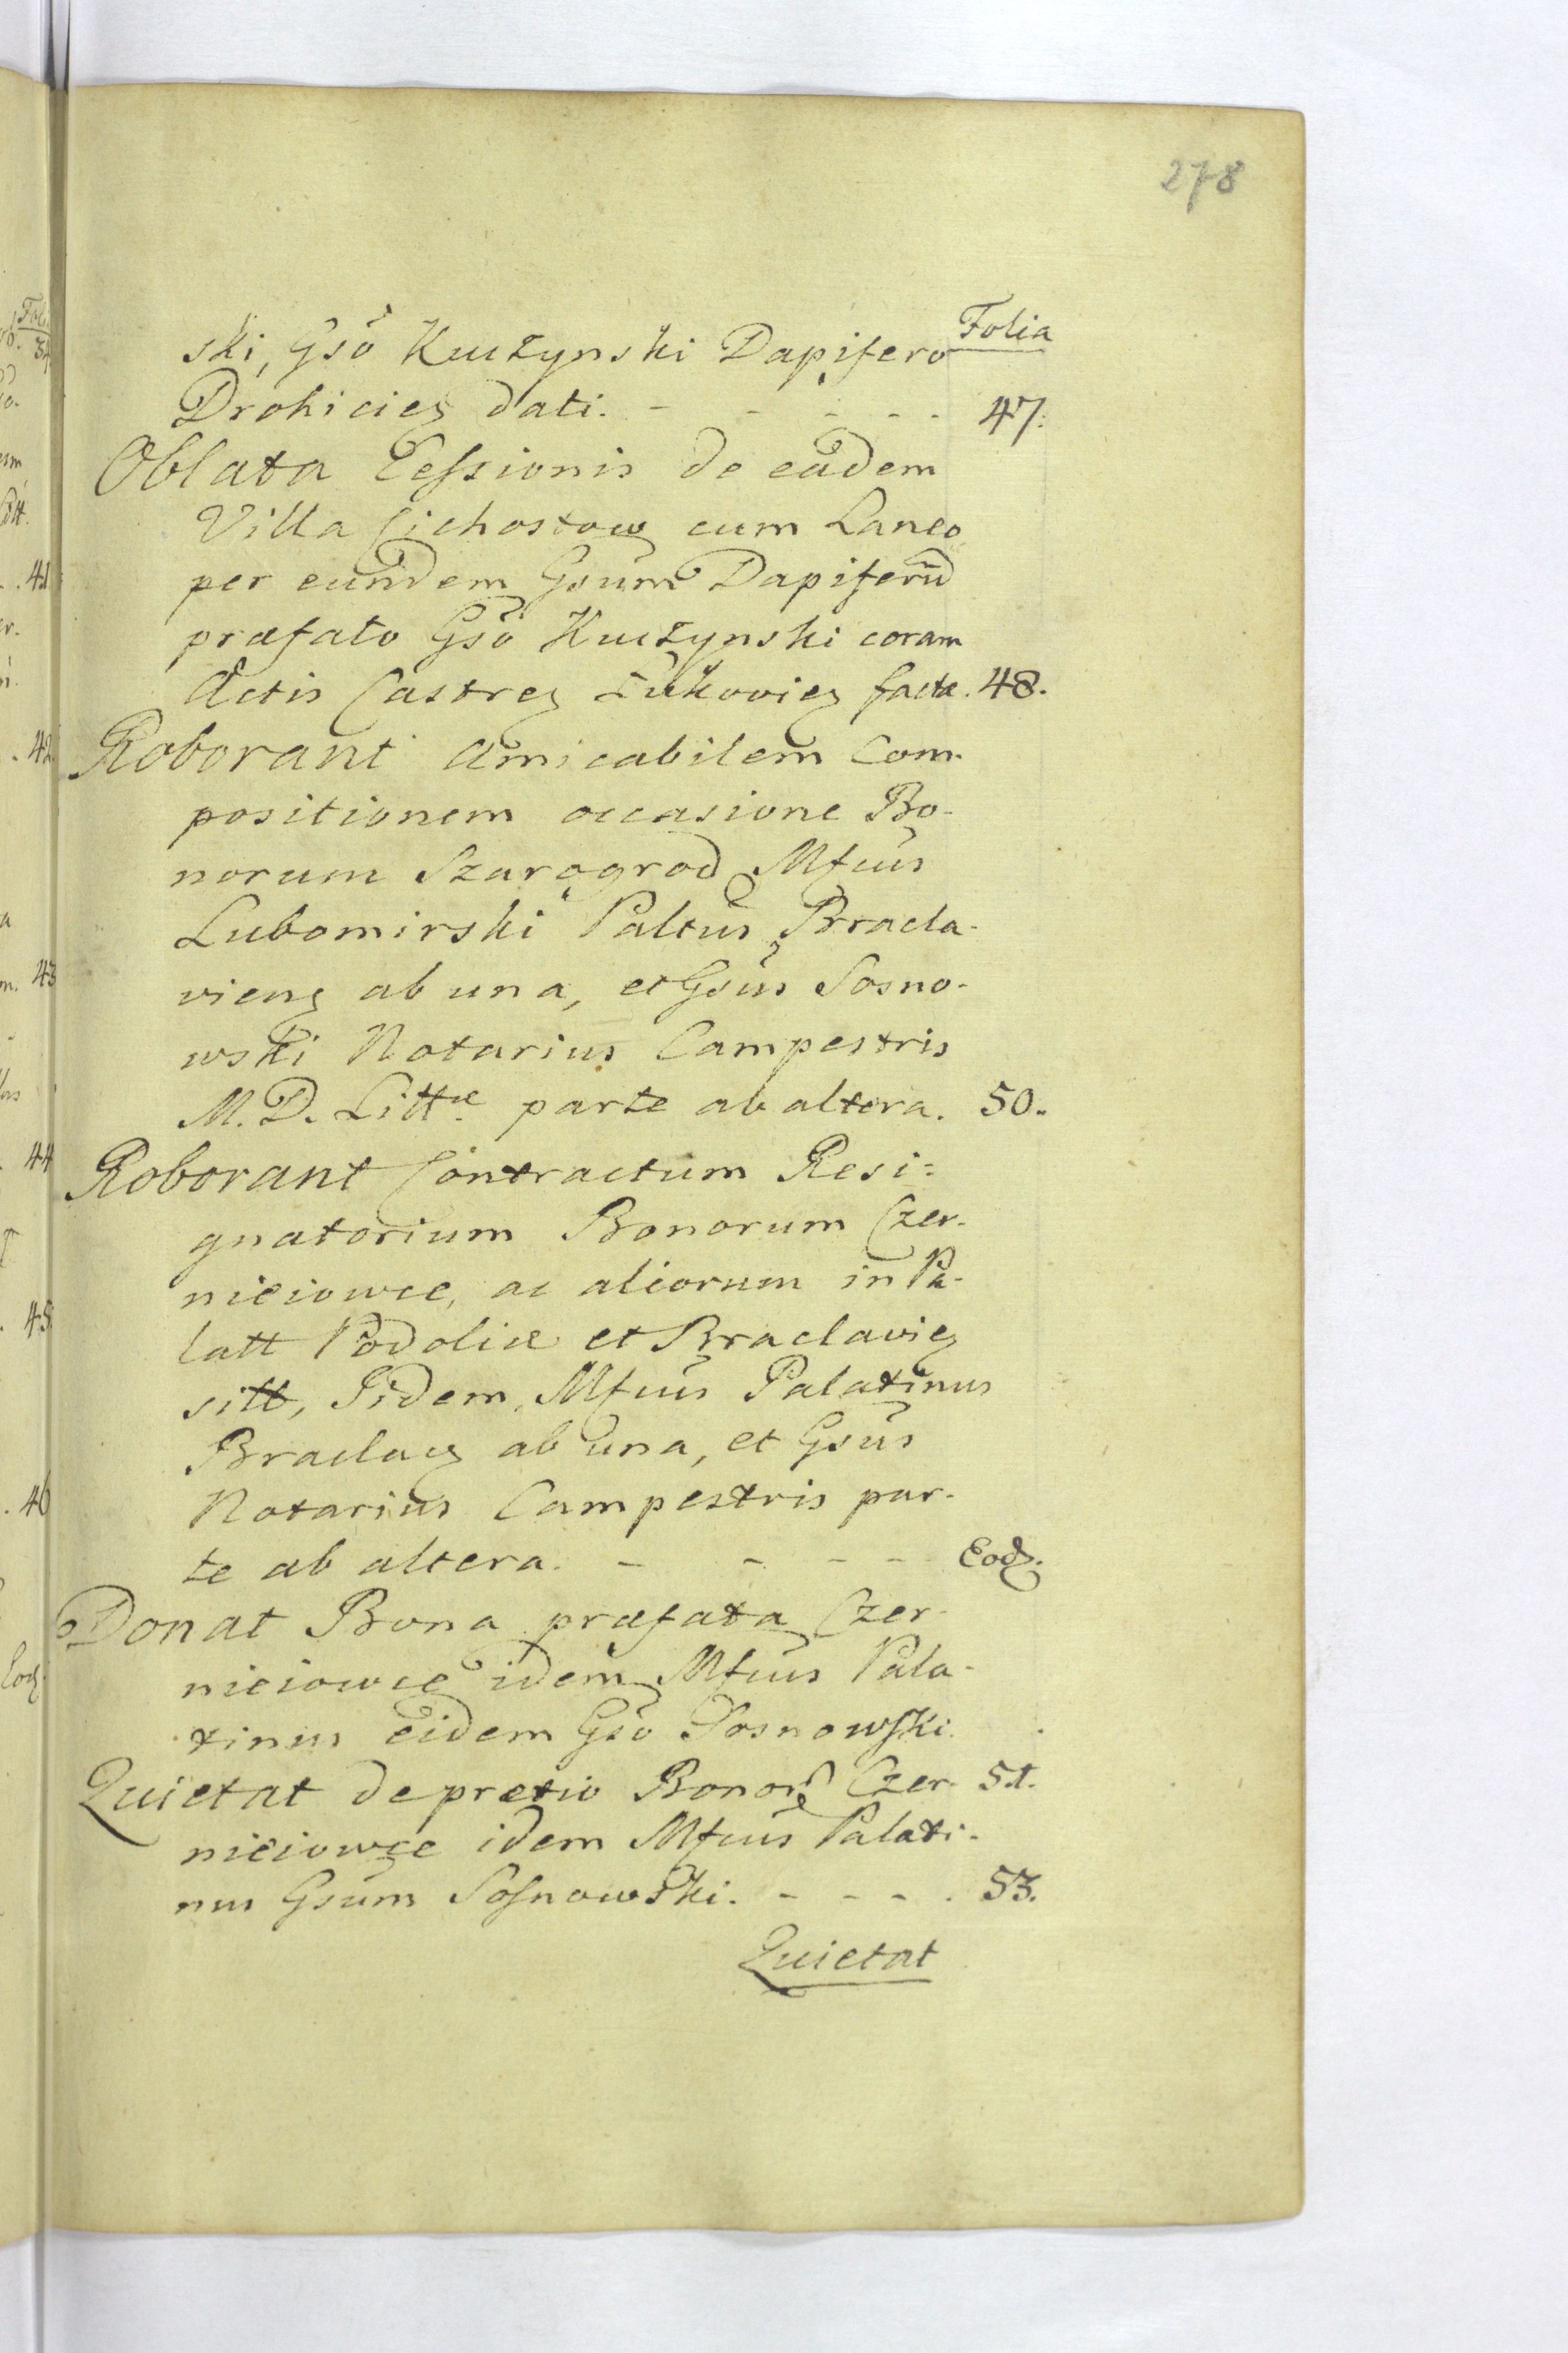 278
Folia
ski, Gsō Kuczynski Dapifero
Drohicieꝫ dati. - - - - - 47.
Oblata Cessionis de eadem
Villa Cichostow cum Laneo
per eundem Gsum Dapiferū
præfato Gsō Kuczynski coram
Actis Castreꝫ Łukovieꝫ facta. 48.
Roborant amicabilem Com-
positionem occasione Bo-
norum Szarogrod Mfcus
Lubomirski Paltus Bracla-
vienꝫ ab una, et Gsus Sosno-
wski Notarius Campestris
M. D. Littæ parte ab altera. 50.
Roborant Contractum Resi=
gnatorium Bonorum Czer-
nieiowce, ac aliorum in Pa-
latt Podoliæ et Braclavieꝫ
sitt, Iidem, Mfcus Palatinus
Braclaꝫ ab una, et Gsus
Notarius Campestris par-
te ab altera. - - - - Eodꝫ.
Donat Bona præfata Czer-
nieiowce idem Mfcus Pala-
tinus eidem Gsō Sosnowski.
Quietat de pretio Bonor Czer- 51.
nieiowce idem Mfcus Palati-
nus Gsum Sosnowski. - - - . 53.
Quietat